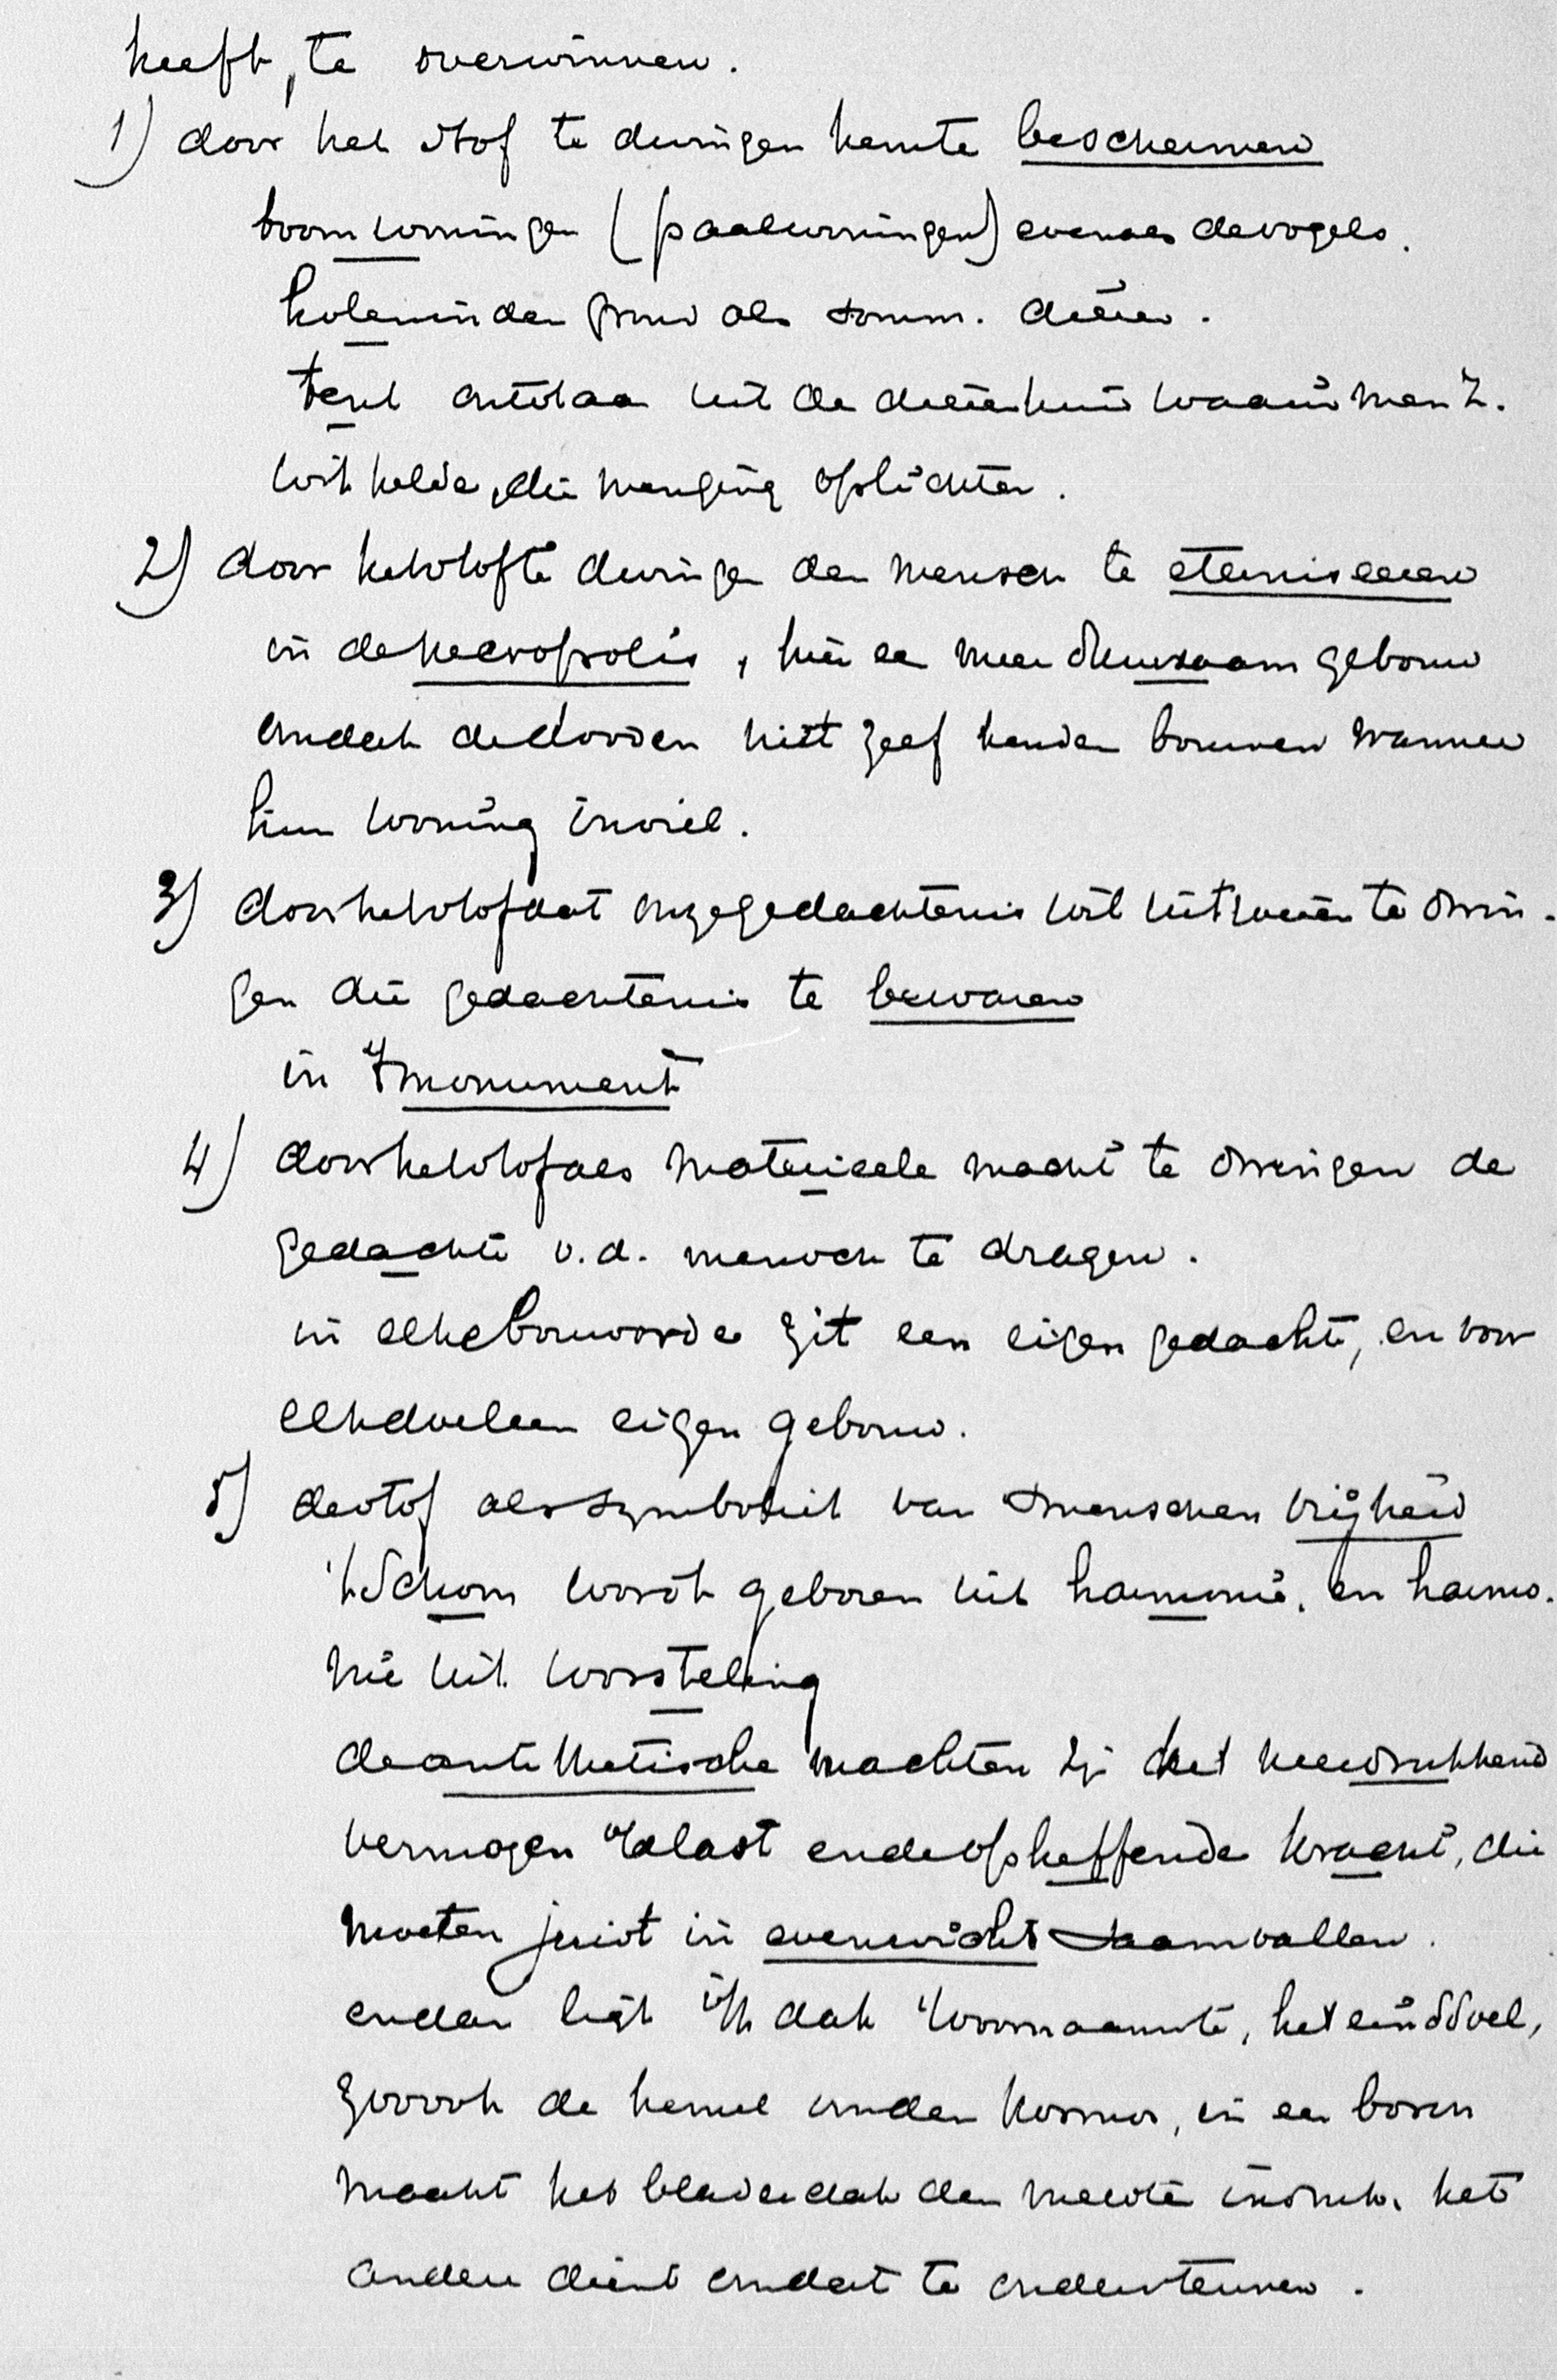 heeft, te overwinnen.
1) door het stof te dwingen hem te beschermen
boomwoningen (paalwoningen) evenals de vogels.
holen in den grond als somm. dieren.
tent ontstaan uit de dierenhuid waarin men z.
wikkelde, die men ging oplichten.
2) door het stof te dwingen den mensch te eterniseeren
in de necropolis, hier een meer duurzaam gebouw
omdat de dooden niet zelf konden bouwen wanneer
hun woning inviel.
3) door het stof dat onze gedachtenis wil uitroeien te dwin-
gen die gedachtenis te bewaren
in 't monument
4) door het stof als materieele macht te dwingen de
gedachte v.d. mensch te dragen.
in elke bouworde zit een eigen gedachte, en voor
elk doel een eigen gebouw.
5) de stof als symboliek van 's menschen vrijheid
't Schoon wordt geboren uit harmonie, en harmo-
nie uit worsteling
de antithetische machten zijn het neerdrukkend
vermogen v/d last en de opheffende kracht, die
moeten juist in evenwicht saamvallen.
en dan ligt i/h dak 't voornaamste, het einddoel,
zooook de hemel om den kosmos, in een boom
maakt het bladerdak den meesten indruk. het
andere dient om dat te ondersteunen.